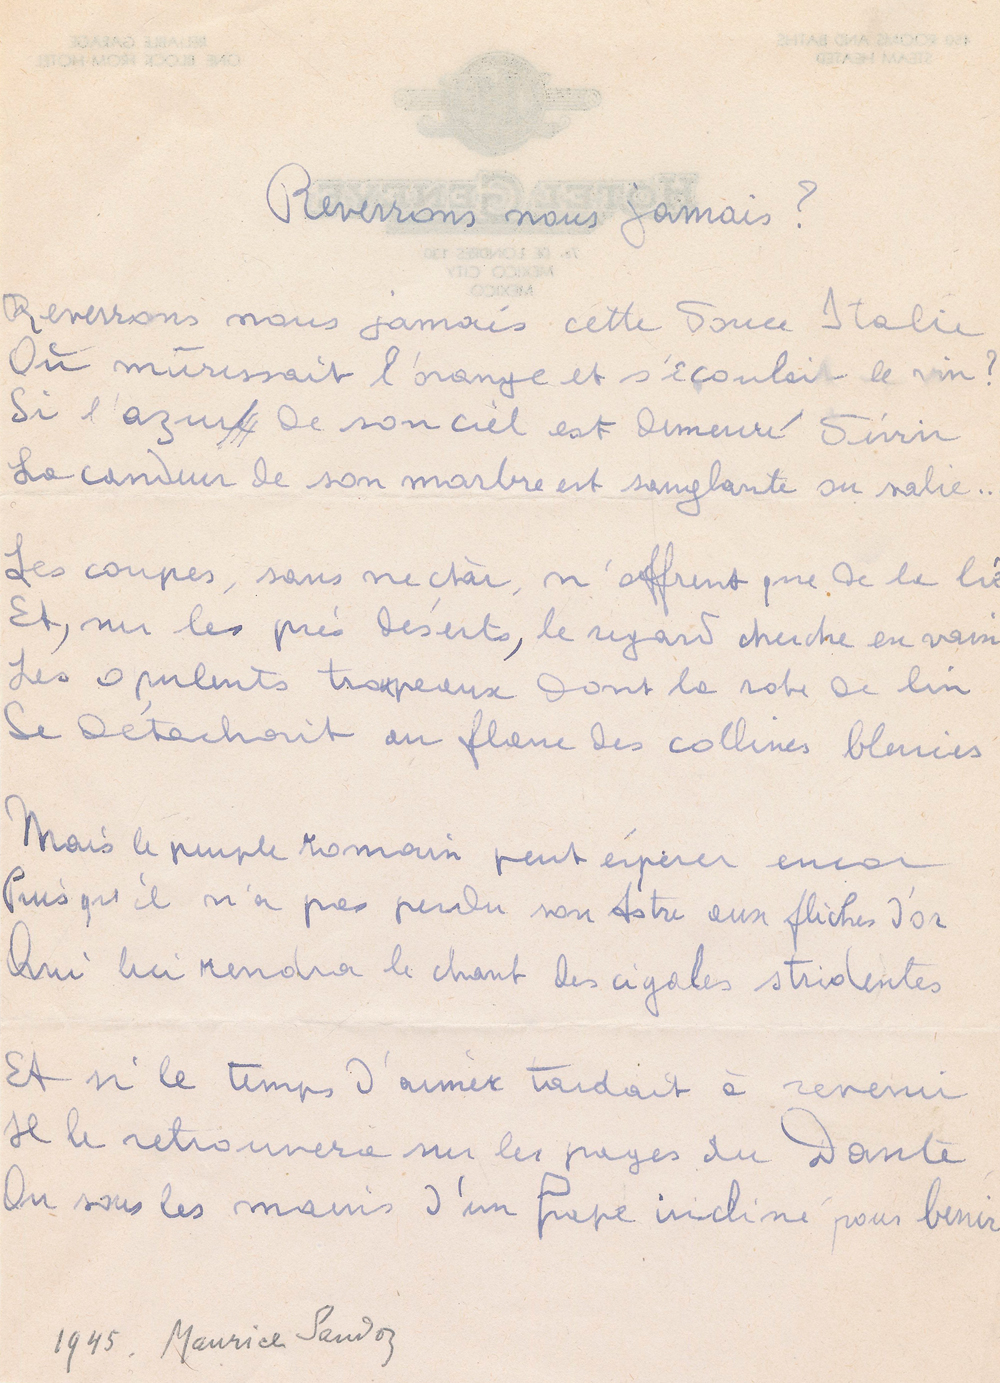 RELIABLE GARAGE
ONE BLOCK FROM HOTEL
450 ROOMS AND BATHS
STEAM HEATED
HOTEL GENEVE
7a. DE LONDRES 130
MEXICO CITY
MEXICO
Reverrons nous jamais ?
Reverrons nous jamais cette douce Italie
Où mûrissait l'orange et s'écoulait le vin ?
Si l'azur de son ciel est demeuré divin
La candeur de son marbre est sanglante ou salie..
Les coupes, sans nectar, n'offrent que de la lie
Et, sur les prés déserts, le regard cherche en vain
Les opulents troupeaux dont la robe de lin
Se détachait au flanc des collines bleuies
Mais le peuple romain peut espérer encor
Puisqu'il n'a pas perdu son Astre aux flèches d'or
Qui lui rendra le chant des cigales stridentes
Et si le temps d'aimer tardait à revenir
Il le retrouvera sur les pages du Dante
Ou sous les mains d'un Pape incliné pour bénir
1945. Maurice Sandoz